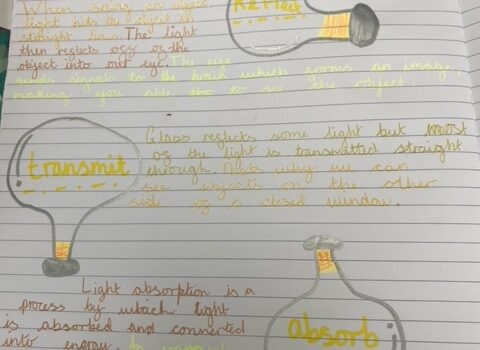 When seeing an object,
light hits the object in
straight lines. The light
then reflects off of the
object into out eye. The eye
sends signals to the brain which forms an image,
making you able tho to see the object.
Reflect
Glass reflects some light but most
of the light is transmitted straight
through. Thats why we can
see objects on the other
side of a closed window.
transmit
Light absorption is a
process by which light
is absorbed and connected
into energy. An
absorb